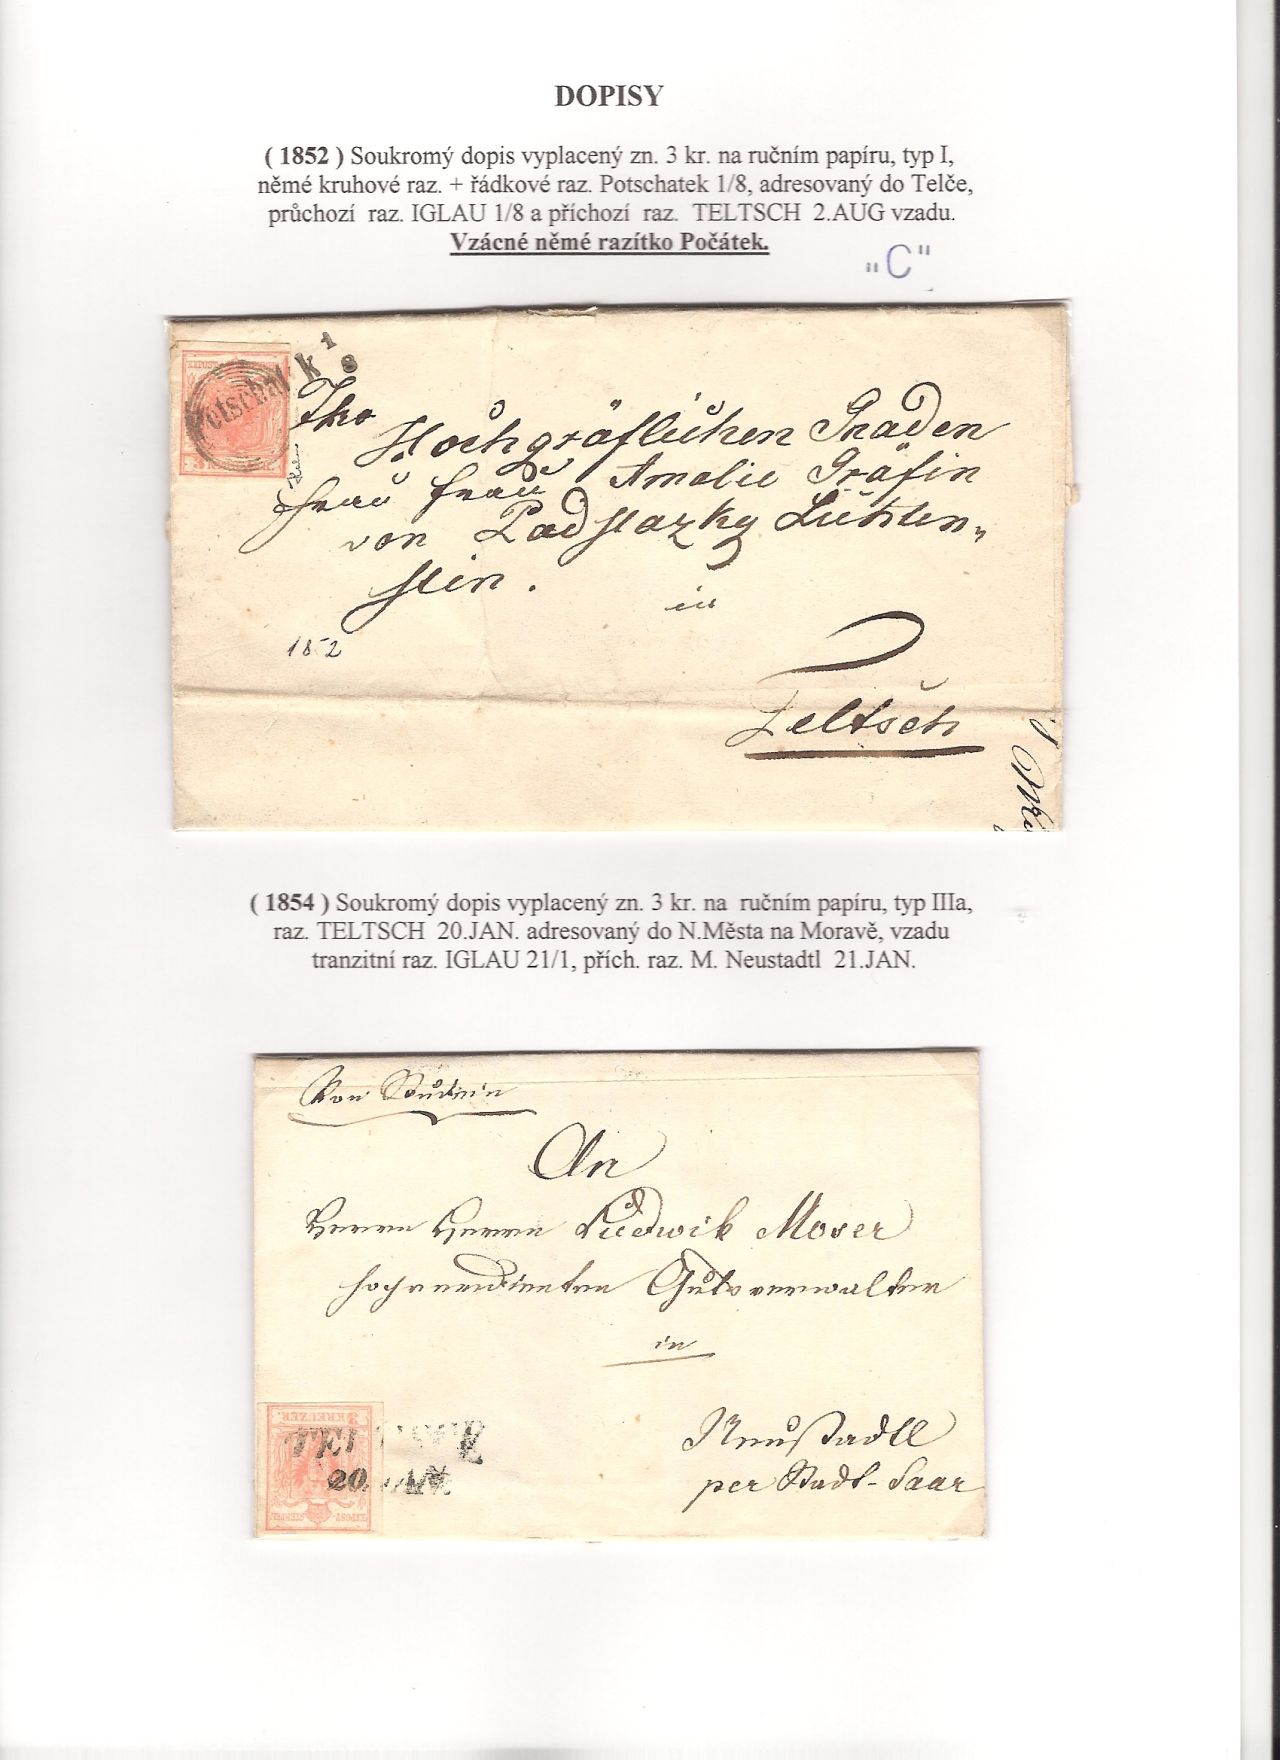 DOPISY
( 1852 ) Soukromý dopis vyplacený zn. 3 kr. na ručním papíru, typ I,
němé kruhové raz. + řádkové raz. Potschatek 1/8, adresovaný do Telče,
průchozí raz. IGLAU 1/8 a příchozí raz. TELTSCH 2.AUG vzadu.
Vzácné němé razítko Počátek.
"C"
Potschatek 1/8
Ihro
Hochgräflichen Gnaden
Frau Frau Amalie Gräfin
von Padstazky Lichten„
stein.
in
Teltsch
1852
( 1854 ) Soukromý dopis vyplacený zn. 3 kr. na ručním papíru, typ IIIa,
raz. TELTSCH 20.JAN. adresovaný do N.Města na Moravě, vzadu
tranzitní raz. IGLAU 21/1, přích. raz. M. Neustadtl 21.JAN.
Von Studein
An
Herrn Herrn Ludwik Moser
hochverdienten Gutsverwalter
in
3 KREUZER
TELTSCH
20. JAN.
K.K.POST-STEMPEL
Neustadtl
per Stadt-Saar